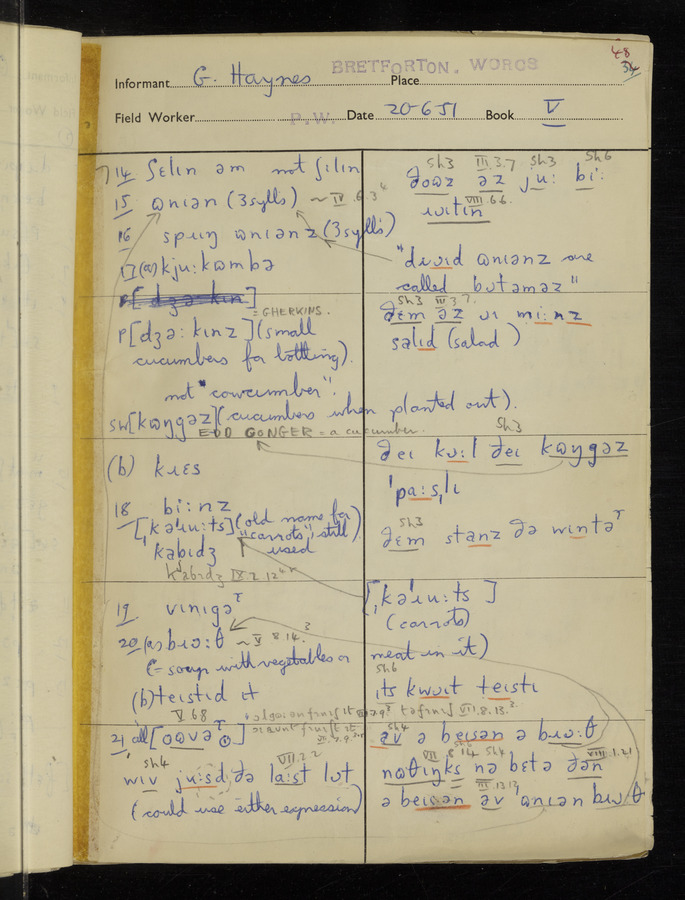 48
34
BRETFORTON. WORCS
Informant G. Haynes Place
Field Worker P.W. Date 20-6-51 Book V
14 ʃɛlɪn əm not ʃɪlɪn
15 ɒnɪən (3 sylls) ~ IV.6.3
16 spɹɪŋ ɒnɪənz (3 sylls)
17 (a) kju:kɒmbə
= GHERKINS.
r[dʒə:kɪnz] (small
cucumbers for bottling).
not "cowcumber".
sw[kɒŋgəz] (cucumbers when planted out).
EDD GONGER = a cucumber.
(b) kɹɛs
18 bi:nz
[ˌkəˈɹu:ts] (old name for
"carrots", still
used
kabɪdʒ
kabɪdʒ IX.2.12
19 vɪnɪgə
20 (a) bɹɔ:θ ~ V 8.14.
(= soup with vegetables or meat in it)
(b) teɪstɪd ɪt
V 68
21 all [ɒʊvə]
Sh4 VII.2.2
wɪv ju:sd ðə la:st lɒt
(could use either expression)
Sh3 III.3.7 Sh3 Sh6
ðoʊz əz ju: bi:
VIII 6.6.
"dɹɔɪd ɒnɪənz are
called bʊtəməz"
Sh3 III 3.7.
ðɛm əz ɒɪ mi:nz
salɪd (salad)
Sh3
ðeɪ kɔ:l ðeɪ kɒŋgəz
ˈpa:sˌlɪ
Sh3
ðɛm stanz ðə wɪntə
[ˌkəˈɹu:ts]
(carrots)
Sh6
ɪts kwɔɪt teɪstɪ
VII.8.13.
Sh4
əv ə beɪsən ə bɹɔ:θ
VII 8 14 Sh4 VIII.1.21
nɒθɪŋks nə bɛtə ðən
III 13 13
ə beɪsən əv ɒnɪən bɹɔθ